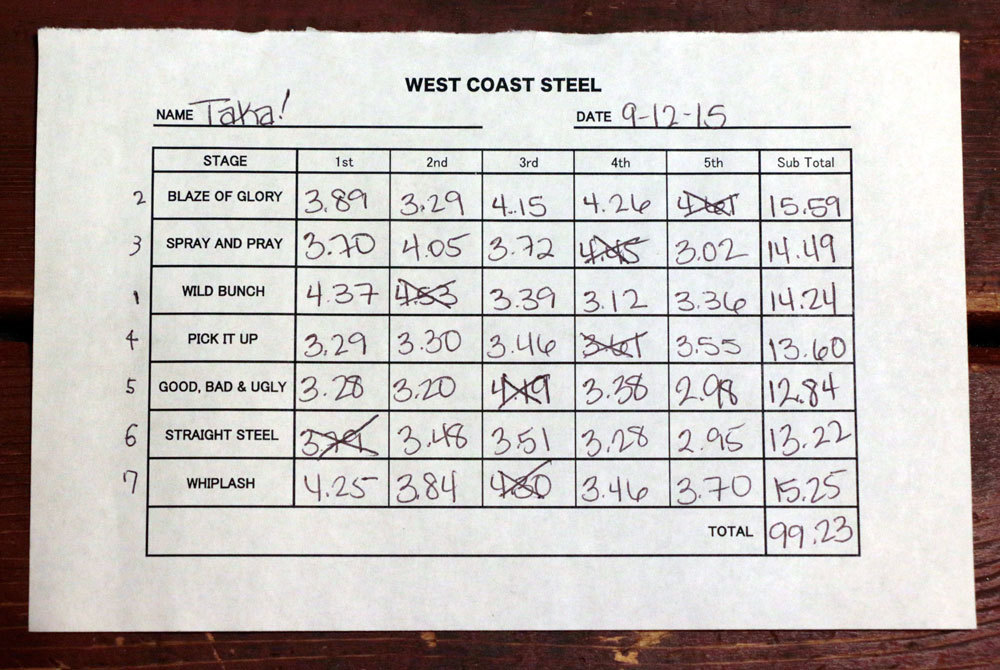 WEST COAST STEEL
NAME Taka! DATE 9-12-15
STAGE 1st 2nd 3rd 4th 5th Sub Total
2 BLAZE OF GLORY 3.89 3.29 4.15 4.26 4.61 15.59
3 SPRAY AND PRAY 3.70 4.05 3.72 4.45 3.02 14.49
1 WILD BUNCH 4.37 4.53 3.39 3.12 3.36 14.24
4 PICK IT UP 3.29 3.30 3.46 3.61 3.55 13.60
5 GOOD, BAD & UGLY 3.28 3.20 4.49 3.38 2.98 12.84
6 STRAIGHT STEEL 3.79 3.48 3.51 3.28 2.95 13.22
7 WHIPLASH 4.25 3.84 4.30 3.46 3.70 15.25
TOTAL 99.23